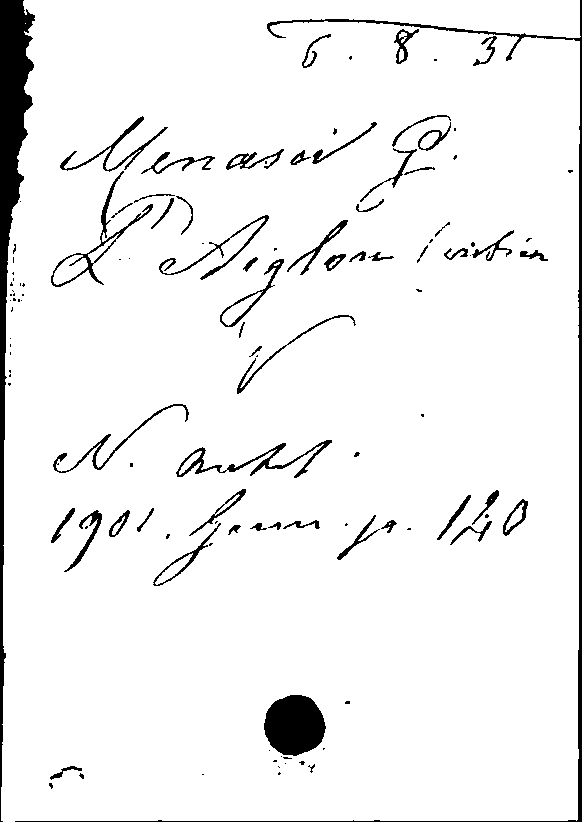 6. 8. 31
Menasci G.
L'Aiglon (
V
N. Antol.
1901. Genn. p. 120